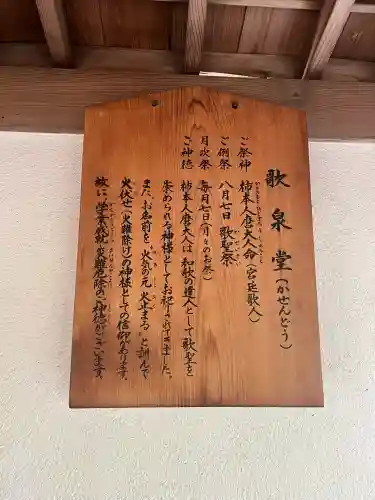 歌泉堂(かせんどう)
ご祭神 柿本人麿大人命(宮廷歌人)
ご例祭 八月七日 歌聖祭
月次祭 毎月七日(月々のお祭)
ご神徳 柿本人麿大人は和歌の達人として歌聖と
崇められ神様としてもお祀りされてきました。
また、お名前を「火気の元 火止まる」と訓んで
火伏せ(火難除け)の神様としての信仰があります。
故に 学業成就、災難危除のご神徳がございます。